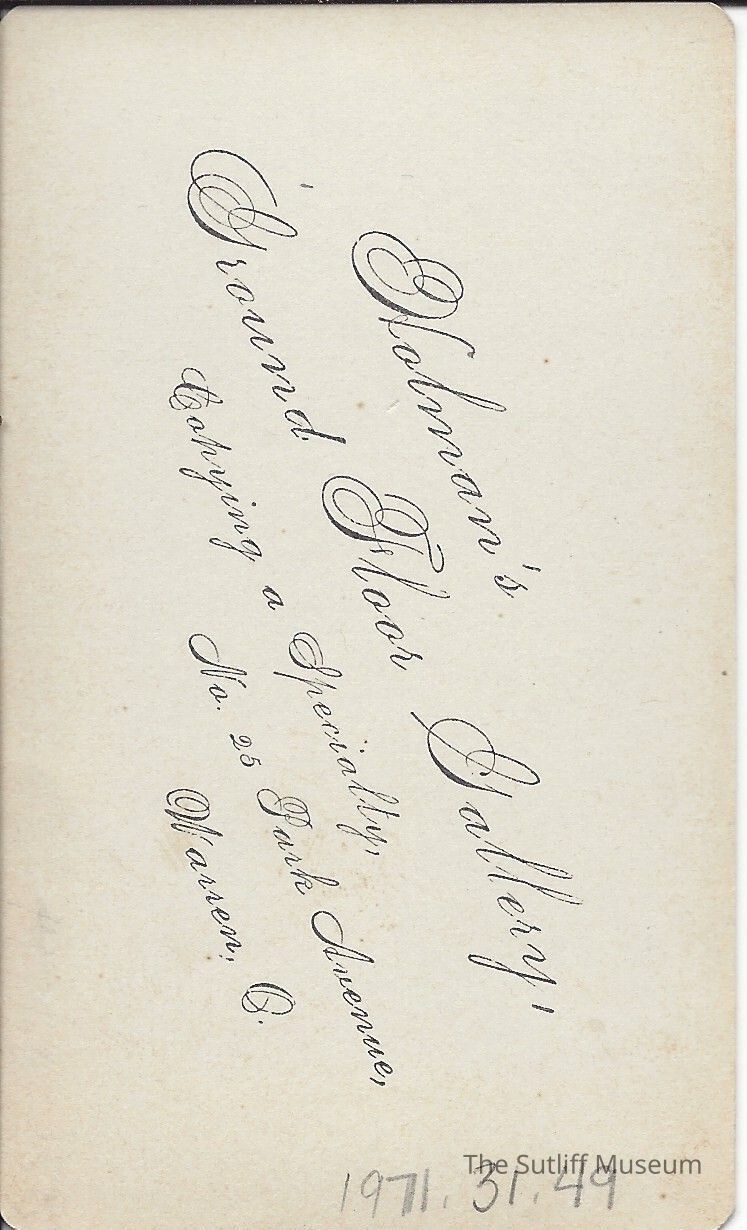 Holman's
Ground Floor Gallery,
Copying a Specialty,
No. 25 Park Avenue,
Warren, O.
The Sutliff Museum
1971.31.49